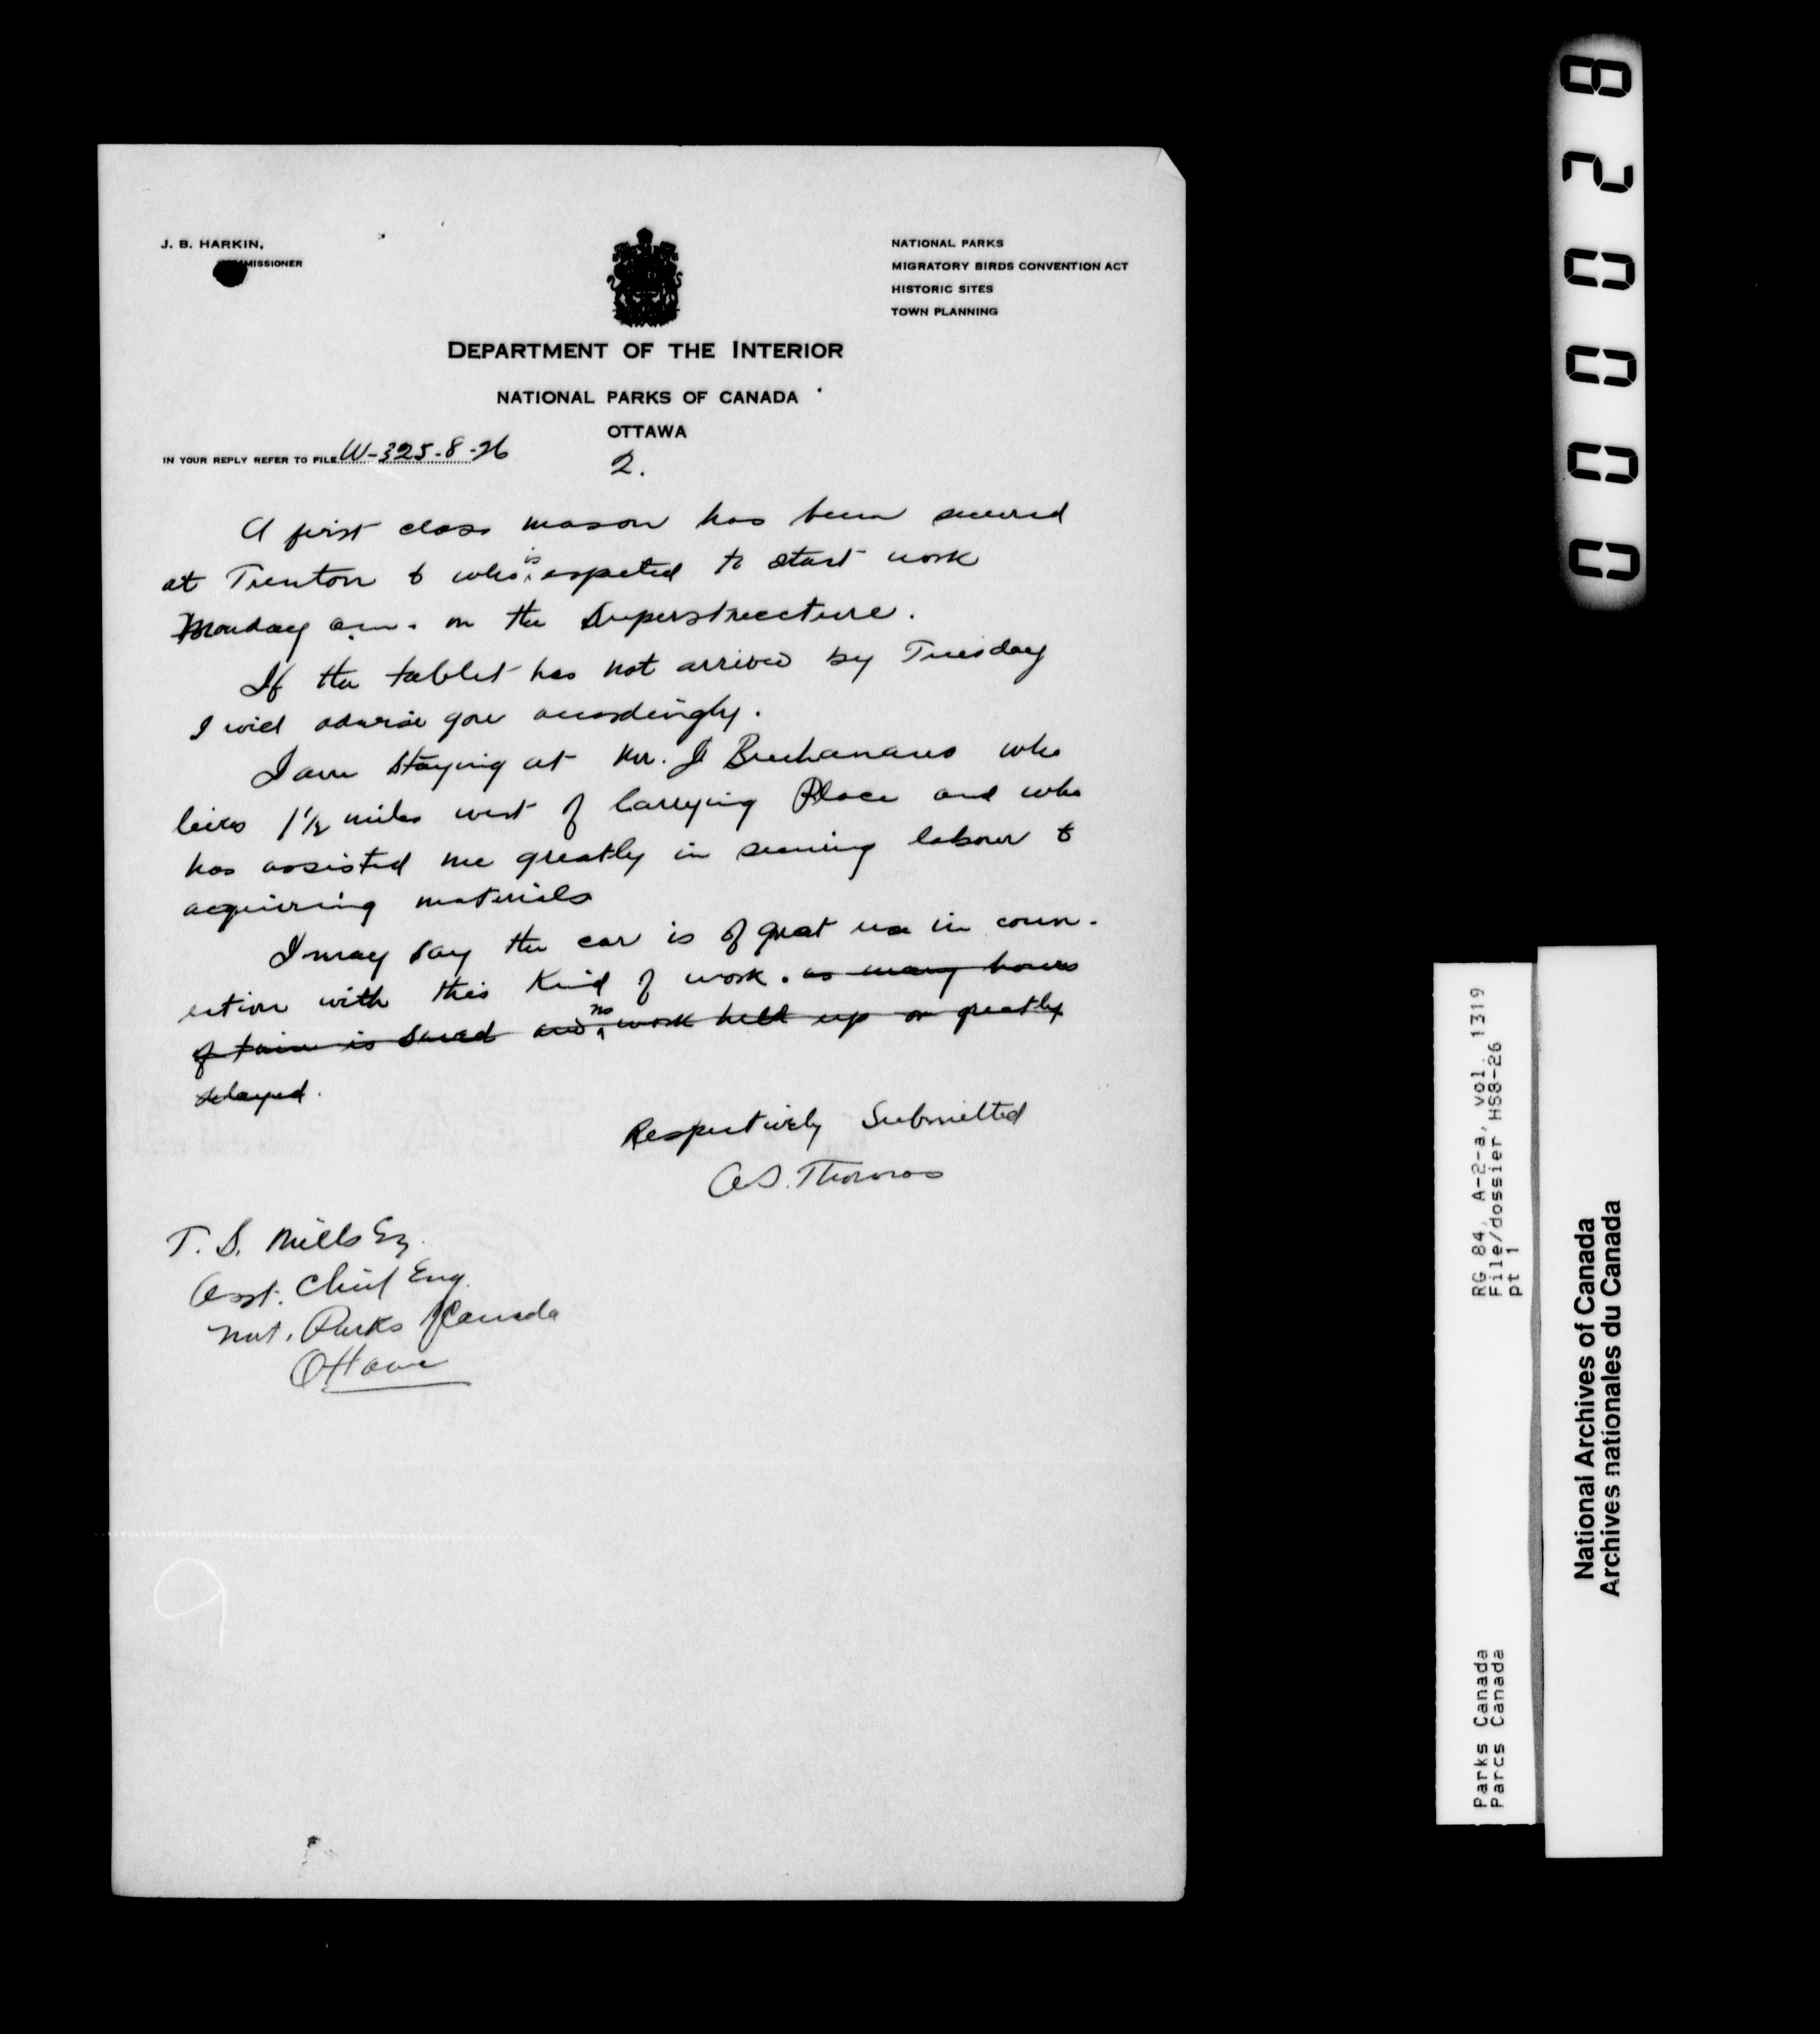 J. B. HARKIN,
COMMISSIONER
NATIONAL PARKS
MIGRATORY BIRDS CONVENTION ACT
HISTORIC SITES
TOWN PLANNING
DEPARTMENT OF THE INTERIOR
NATIONAL PARKS OF CANADA
OTTAWA
IN YOUR REPLY REFER TO FILE W-325-8-26
2.
A first class mason has been secured
at Trenton & who is expected to start work
Monday a.m. on the Superstructure.
If the tablet has not arrived by Tuesday
I will advise you accordingly.
I am staying at Mr. J Buchanans who
lives 1 1/2 miles west of Carrying Place and who
has assisted me greatly in securing labour &
acquiring materials
I may say the car is of great use in conn-
ection with this kind of work. as many hours
of time is saved and no work held up or greatly
delayed.
Respectively Submitted
A.S. Thomas
T. S. Mills Esq.
Asst. Chief Eng.
Nat. Parks of Canada
Ottawa
000028
RG 84, A-2-a, vol. 1319
File/dossier HS8-26
pt 1
Parks Canada
Parcs Canada
National Archives of Canada
Archives nationales du Canada